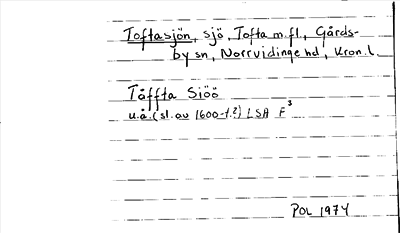 Toftasjön, sjö, Tofta m.fl., Gårds-
by sn, Norrvidinge hd, Kron.l.
Tåffta Siöö
u.å. (sl. av 1600-t.?) LSA F³
POL 1974